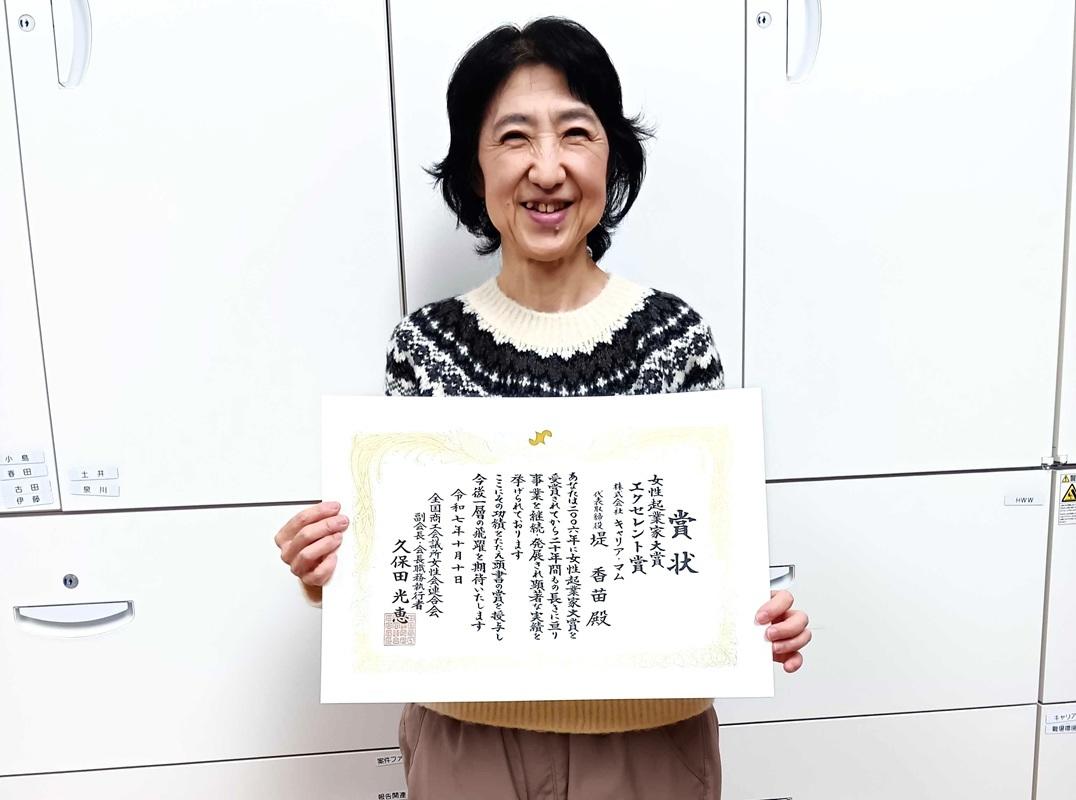 賞状
女性起業家大賞
エクセレント賞
株式会社 キャリア・マム
代表取締役 堤 香苗 殿
あなたは二〇〇六年に女性起業家大賞を
受賞されてから二十年間もの長きに亘り
事業を継続・発展され顕著な実績を
挙げられております
ここにその功績をたたえ頭書の賞を授与し
今後一層の飛躍を期待いたします
令和七年十月十日
全国商工会議所女性会連合会
副会長・会長職務執行者
久保田 光恵
小島
春田
古田
伊藤
土井
泉川
HWW
キャリア
職場環境
案件ファ
報告関連